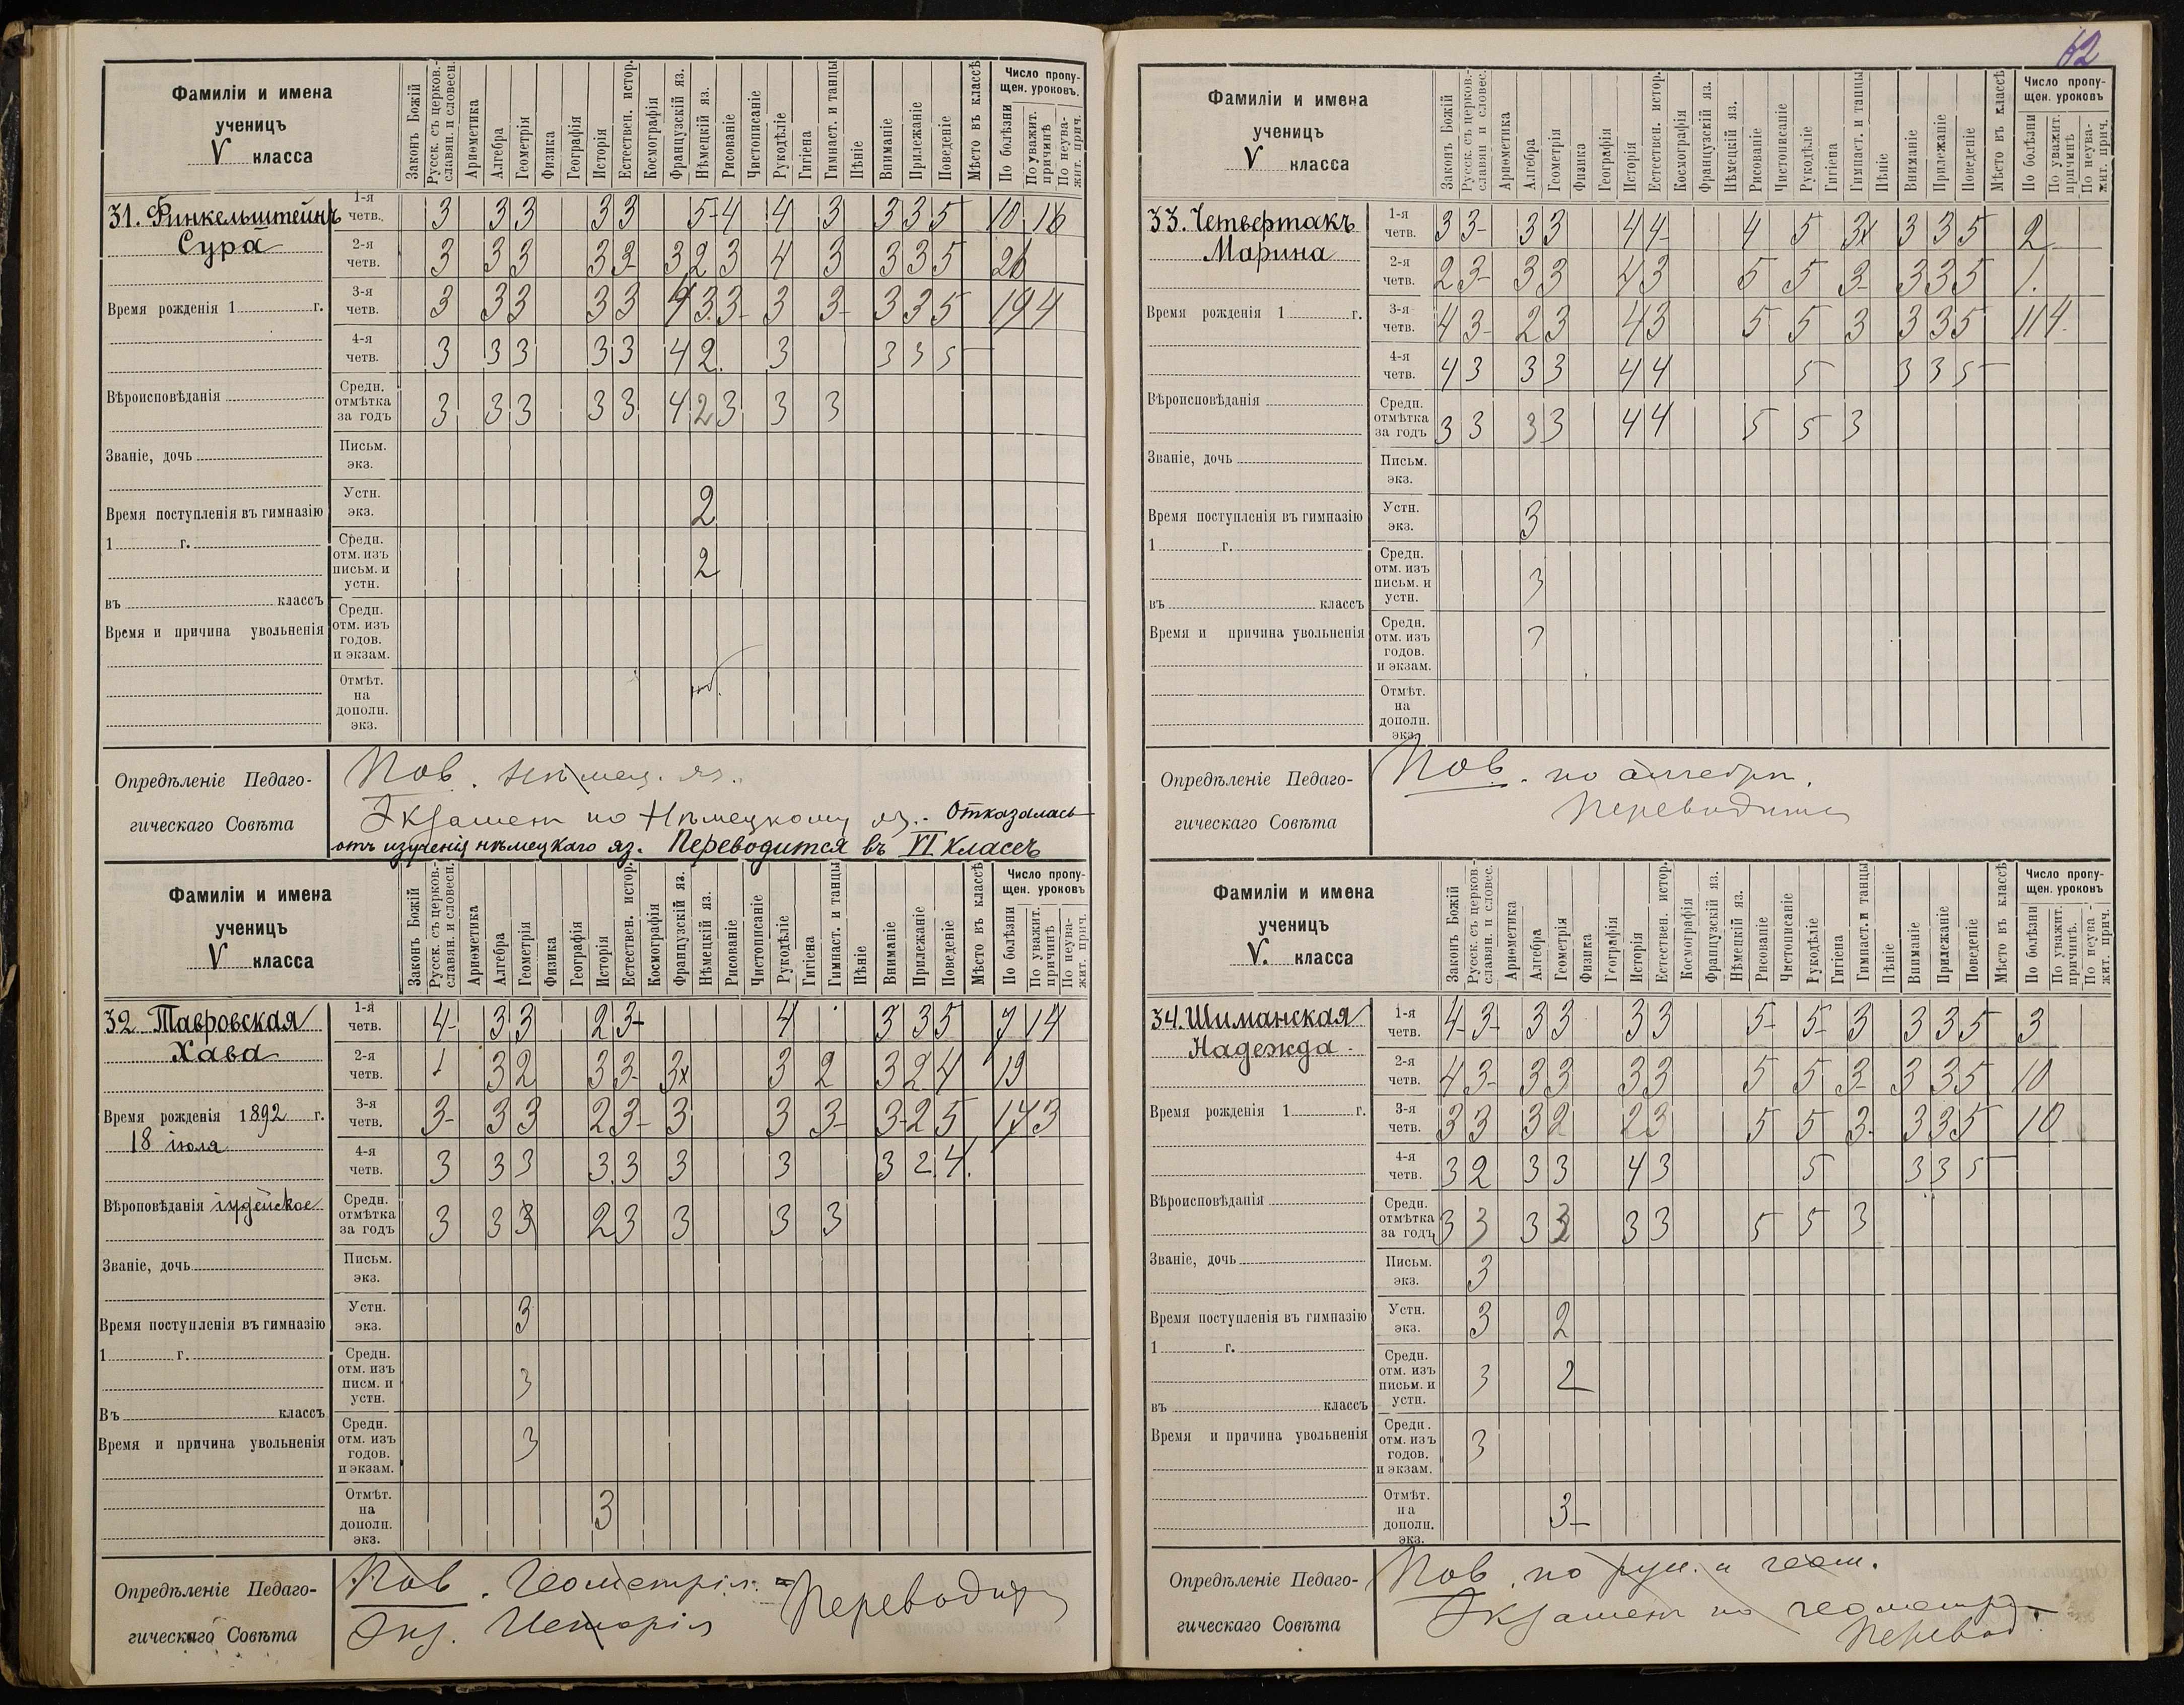 62
Фамиліи и имена
ученицъ
V класса
Законъ Божій
Русск. съ церков.-
славян. и словесн.
Ариѳметика
Алгебра
Геометрія
Физика
Географія
Исторія
Естествен. истор.
Космографія
Французскій яз.
Нѣмецкій яз.
Рисованіе
Чистописаніе
Рукодѣліе
Гигіена
Гимнаст. и танцы
Пѣніе
Вниманіе
Прилежаніе
Поведеніе
Мѣсто въ классѣ
Число пропу-
щен. уроковъ.
По болѣзни
По уважит.
причинѣ
По неува-
жит. прич.
31. Финкельштейнъ
Сура
Время рожденія 1 г.
Вѣроисповѣданія
Званіе, дочь
Время поступленія въ гимназію
1 г.
въ классъ
Время и причина увольненія
1-я четв. 3 3 3 3 3 5- 4 4 3 3 3 5 10 16
2-я четв. 3 3 3 3 3- 3 2 3 4 3 3 3 5 26
3-я четв. 3 3 3 3 3 4 3 3- 3 3- 3 3 5 19 4
4-я четв. 3 3 3 3 3 4 2 3 3 3 5
Средн. отмѣтка за годъ 3 3 3 3 3 4 2 3 3 3
Письм. экз.
Устн. экз. 2
Средн. отм. изъ письм. и устн. 2
Средн. отм. изъ годов. и экзам.
Отмѣт. на дополн. экз.
Опредѣленіе Педаго-
гическаго Совѣта
Пов. нѣмец. яз.
Экзамен по Нѣмецкому яз. - Отказалась
отъ изученія нѣмецкаго яз. Переводится въ VI классъ
Фамиліи и имена
ученицъ
V класса
Законъ Божій
Русск. съ церков.-
славян. и словесн.
Ариѳметика
Алгебра
Геометрія
Физика
Географія
Исторія
Естествен. истор.
Космографія
Французскій яз.
Нѣмецкій яз.
Рисованіе
Чистописаніе
Рукодѣліе
Гигіена
Гимнаст. и танцы
Пѣніе
Вниманіе
Прилежаніе
Поведеніе
Мѣсто въ классѣ
Число пропу-
щен. уроковъ
По болѣзни
По уважит.
причинѣ
По неува-
жит. прич.
32 Тавровская
Хава
Время рожденія 1892 г.
18 іюля
Вѣроповѣданія іудейское
Званіе, дочь
Время поступленія въ гимназію
1 г.
Въ классъ
Время и причина увольненія
1-я четв. 4- 3 3 2 3- 4 3 3 5 7 14
2-я четв. 3 2 3 3- 3х 3 2 3 2 4 19
3-я четв. 3- 3 3 2 3- 3 3 3- 3- 2 5 17 3
4-я четв. 3 3 3 3 3 3 3 3 2 4
Средн. отмѣтка за годъ 3 3 3 2 3 3 3 3
Письм. экз.
Устн. экз. 3
Средн. отм. изъ писм. и устн. 3
Средн. отм. изъ годов. и экзам. 3
Отмѣт. на дополн. экз. 3
Опредѣленіе Педаго-
гическаго Совѣта
Пов. Геометрія. =
Экз. Исторія
Переводит
Фамиліи и имена
ученицъ
V класса
Законъ Божій
Русск. съ церков.-
славян и словес.
Ариѳметика
Алгебра
Геометрія
Физика
Географія
Исторія
Естествен. истор.
Космографія
Французскій яз.
Нѣмецкій яз.
Рисованіе
Чистописаніе
Рукодѣліе
Гигіена
Гимнаст. и танцы
Пѣніе
Вниманіе
Прилежаніе
Поведеніе
Мѣсто въ классѣ
Число пропу-
щен. уроковъ
По болѣзни
По уважит.
причинѣ
По неува-
жит. прич.
33. Четвертакъ
Марина
Время рожденія 1 г.
Вѣроисповѣданія
Званіе, дочь
Время поступленія въ гимназію
1 г.
въ классъ
Время и причина увольненія
1-я четв. 3 3- 3 3 4 4- 4 5 3х 3 3 5 2
2-я четв. 2 3- 3 3 4 3 5 5 3- 3 3 5 1
3-я четв. 4 3- 2 3 4 3 5 5 3 3 3 5 11 4
4-я четв. 4 3 3 3 4 4 5 3 3 5
Средн. отмѣтка за годъ 3 3 3 3 4 4 5 5 3
Письм. экз.
Устн. экз. 3
Средн. отм. изъ письм. и устн. 3
Средн. отм. изъ годов. и экзам. 3
Отмѣт. на дополн. экз.
Опредѣленіе Педаго-
гическаго Совѣта
Пов. по алгебрѣ.
Переводится
Фамиліи и имена
ученицъ
V. класса
Законъ Божій
Русск. съ церков.-
славян. и словес.
Ариѳметика
Алгебра
Геометрія
Физика
Географія
Исторія
Естествен. истор.
Космографія
Французскій яз.
Нѣмецкій яз.
Рисованіе
Чистописаніе
Рукодѣліе
Гигіена
Гимнаст. и танцы
Пѣніе
Вниманіе
Прилежаніе
Поведеніе
Мѣсто въ классѣ
Число пропу-
щен. уроковъ
По болѣзни
По уважит.
причинѣ.
По неува-
жит. прич.
34. Шиманская
Надежда
Время рожденія 1 г.
Вѣроисповѣданія
Званіе, дочь
Время поступленія въ гимназію
1 г.
въ классъ
Время и причина увольненія
1-я четв. 4- 3- 3 3 3 3 5- 5- 3 3 3 5 3
2-я четв. 4 3- 3 3 3 3 5 5 3- 3 3 5 10
3-я четв. 3 3 3 2 2 3 5 5 3- 3 3 5 10
4-я четв. 3 2 3 3 4 3 5 3 3 5
Средн. отмѣтка за годъ 3 3 3 3 3 3 5 5 3
Письм. экз. 3
Устн. экз. 3 2
Средн. отм. изъ письм. и устн. 3 2
Средн. отм. изъ годов. и экзам. 3
Отмѣт. на дополн. экз. 3-
Опредѣленіе Педаго-
гическаго Совѣта
Пов. по рус. и геом.
Экзамен по геометр.
Перевод.